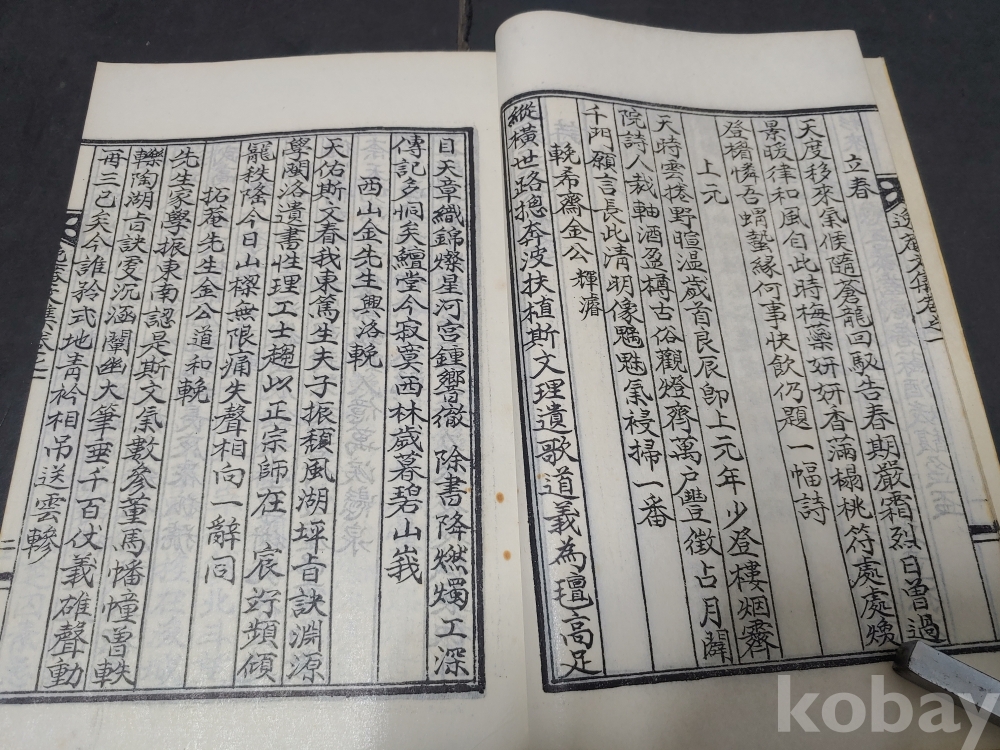 立春
天度移來氣候隨蒼龍回馭告春期嚴霜烈日曾過
景暖律和風自此時梅藥妍妍杏滿榻桃符處處煥
登楣憐吾蝟蟄緣何事快飲仍題一幅詩
上元
天時雲捲野暄温歲首良辰即上元年少登樓烟霽
院詩人裁軸酒盈樽古俗觀燈齊萬户豐徵占月闢
千門願言長此清明像魑魅氣祲掃一番
輓希齋金公 輝濬
縱橫世路摠奔波扶植斯文理遺歌道義為壇高足
目天章織錦燦星河宮鍾響徹 除書降燃燭工深
傳記多恫矣鱣堂今寂寞西林歲暮碧山峩
西山金先生興洛輓
天佑斯文眷我東篤生夫子振頹風湖坪旨訣淵源
學閩洛遺書性理工士趨以正宗師在 宸竚頻傾
寵秩隆今日山樑無限痛失聲相向一辭同
拓菴先生金公道和輓
先生家學振東南認是斯文氣數參董馬幡幢曾軼
轢陶湖旨訣更沉涵闡幽大筆垂千百仗義確聲動
再三已矣今誰矜式地靑衿相吊送雲轇
kobay